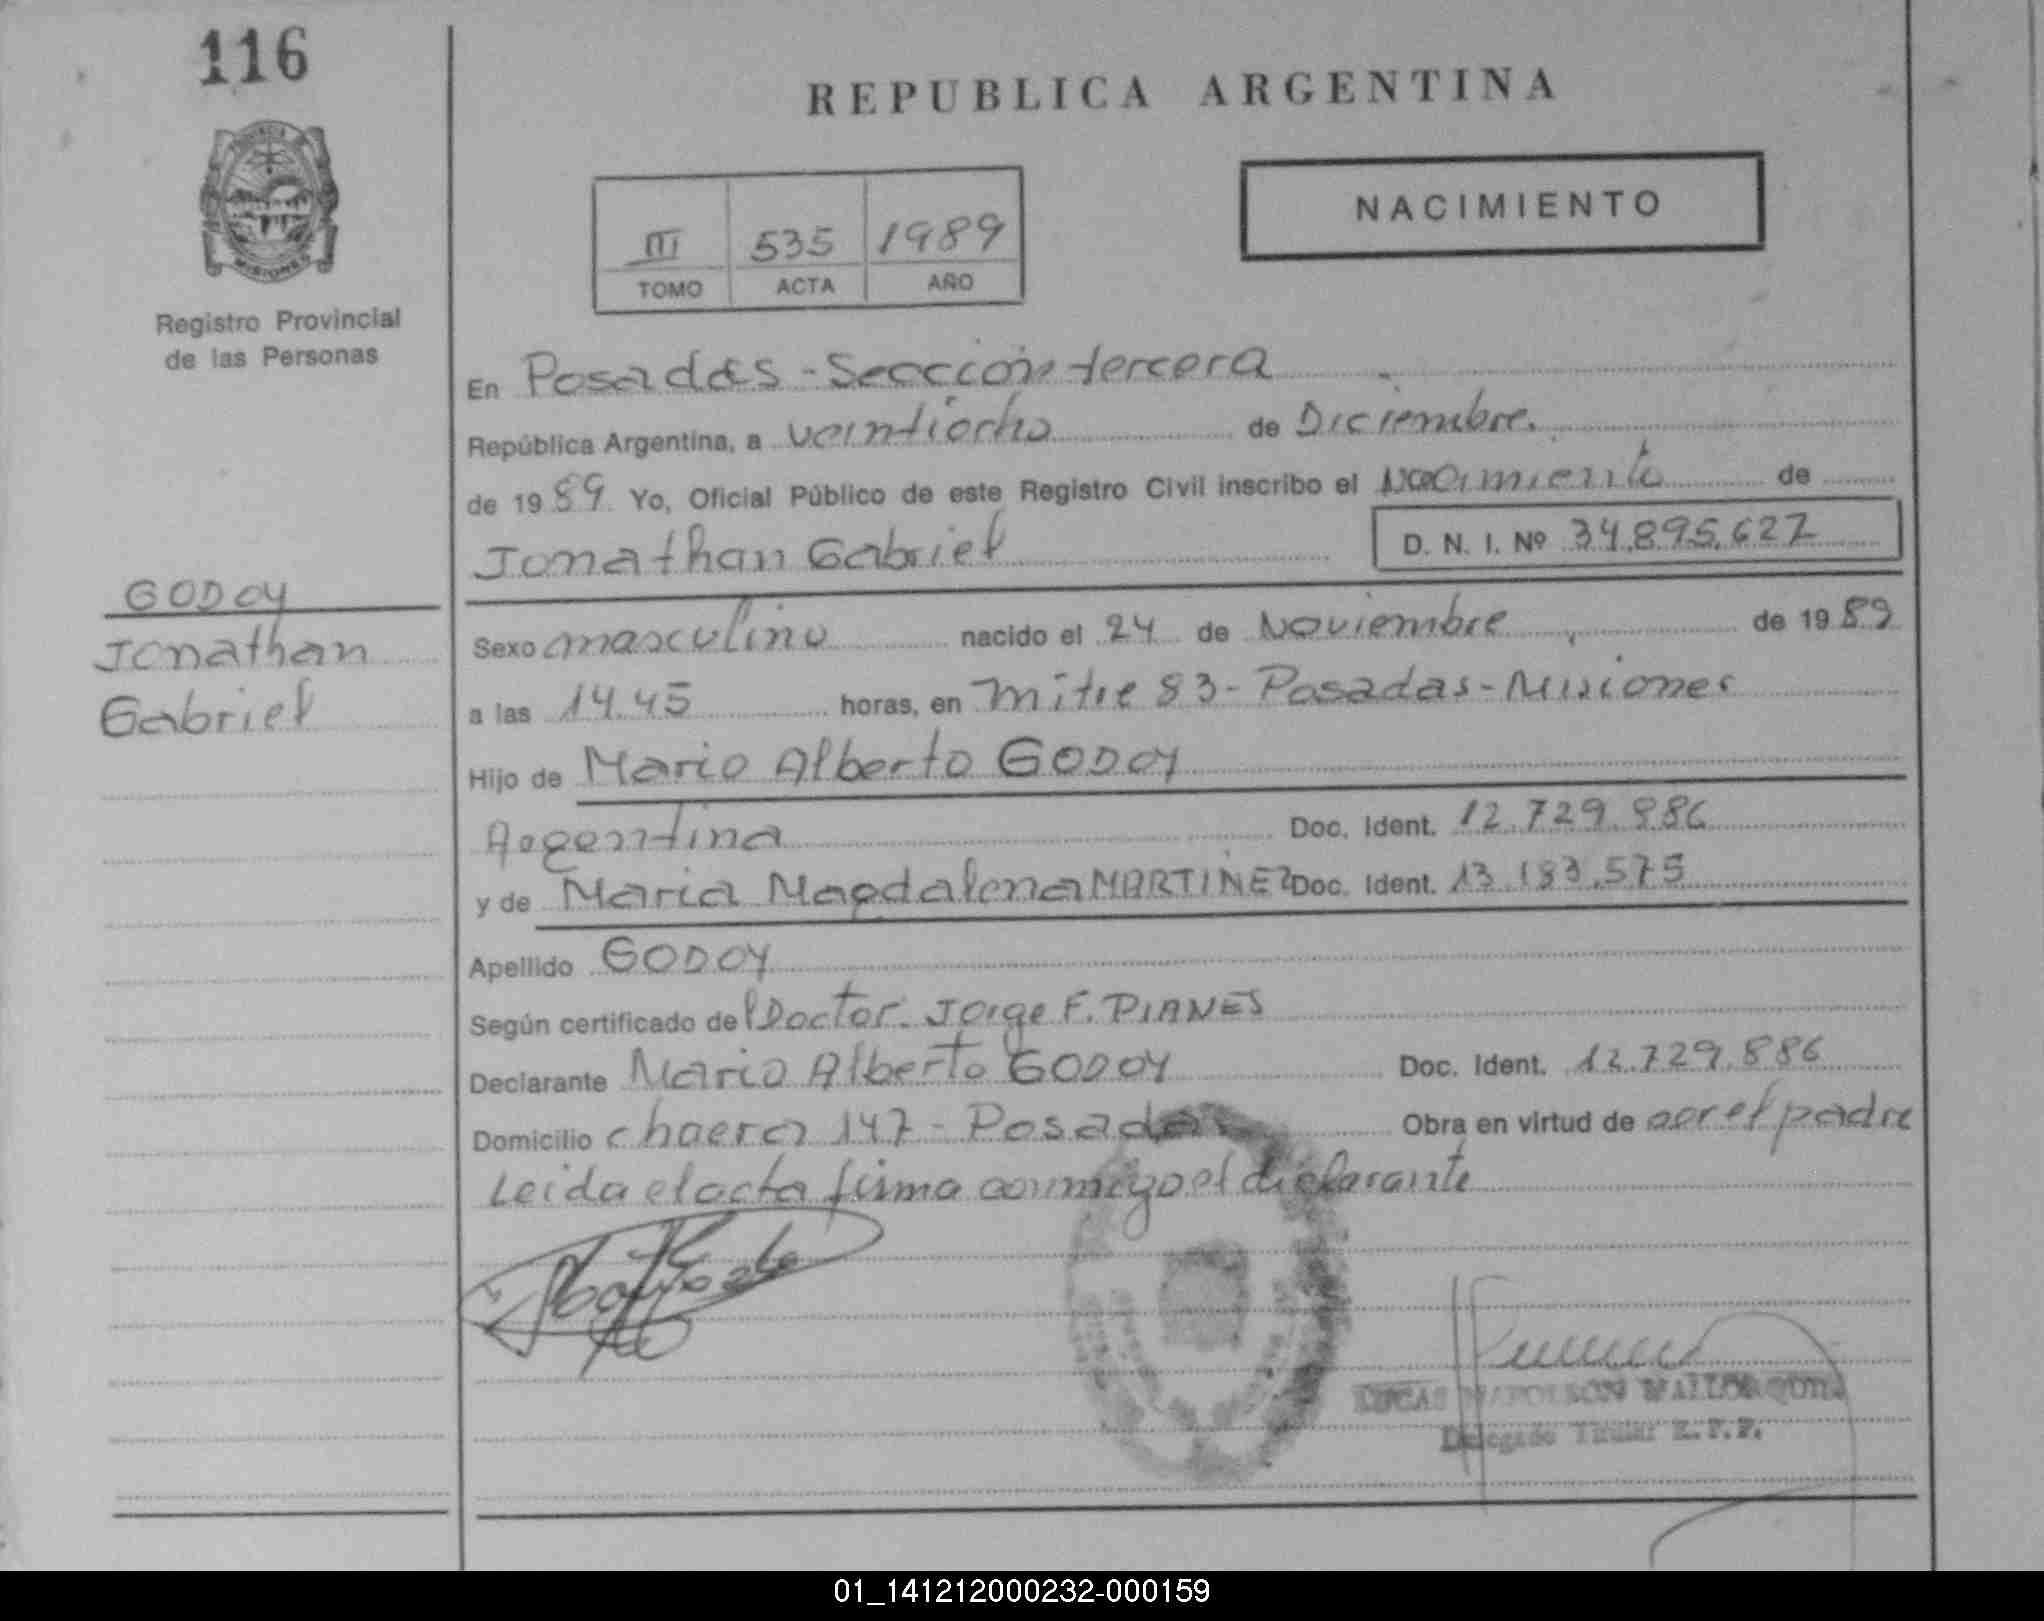 116
REPUBLICA ARGENTINA
PROVINCIA
MISIONES
Registro Provincial
de las Personas
III 535 1989
TOMO ACTA AÑO
NACIMIENTO
En Posadas - Sección tercera
República Argentina, a veintiocho de Diciembre.
de 19 89 Yo, Oficial Público de este Registro Civil inscribo el Nacimiento de
Jonathan Gabriel D. N. I. Nº 34.895.627
GODOY
Jonathan
Gabriel
Sexo masculino nacido el 24 de Noviembre de 19 89
a las 14.45 horas, en Mitre 83 - Posadas - Misiones
Hijo de Mario Alberto GODOY
Argentina Doc. Ident. 12.729.886
y de Maria Magdalena MARTINEZ Doc. Ident. 13.183.575
Apellido GODOY
Según certificado del Doctor. Jorge F. PIANES
Declarante Mario Alberto GODOY Doc. Ident. 12.729.886
Domicilio chacra 147 - Posadas Obra en virtud de ser el padre
Leida el acta firma conmigo el declarante
LUCAS NAPOLEON
Delegado Titular R.P.P.
01_141212000232-000159